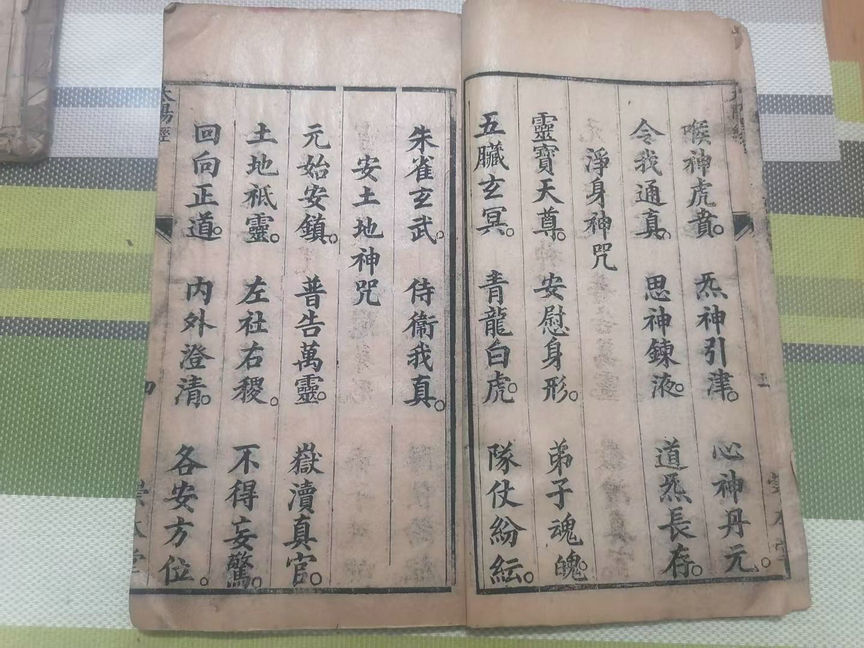 喉神虎賁。炁神引津。心神丹元。
令我通真。思神鍊液。道炁長存。
淨身神咒
靈寶天尊。安慰身形。弟子魂魄。
五臟玄冥。青龍白虎。隊仗紛紜。
朱雀玄武。侍衛我真。
安土地神咒
元始安鎮。普告萬靈。嶽瀆真官。
土地祇靈。左社右稷。不得妄驚。
回向正道。內外澄清。各安方位。
太陽經
四